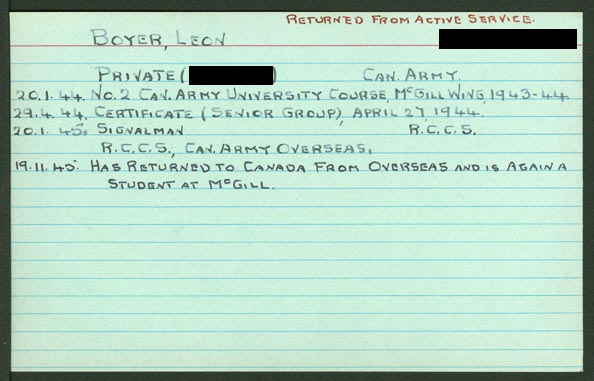 RETURNED FROM ACTIVE SERVICE.
BOYER, LEON
PRIVATE ( ) CAN. ARMY.
20.1.44. NO.2 CAN. ARMY UNIVERSITY COURSE, McGILL WING, 1943-44.
29.4.44. CERTIFICATE (SENIOR GROUP), APRIL 27, 1944.
20.1.45. SIGNALMAN R.C.C.S.
R.C.C.S., CAN. ARMY OVERSEAS.
19.11.45. HAS RETURNED TO CANADA FROM OVERSEAS AND IS AGAIN A
STUDENT AT McGILL.